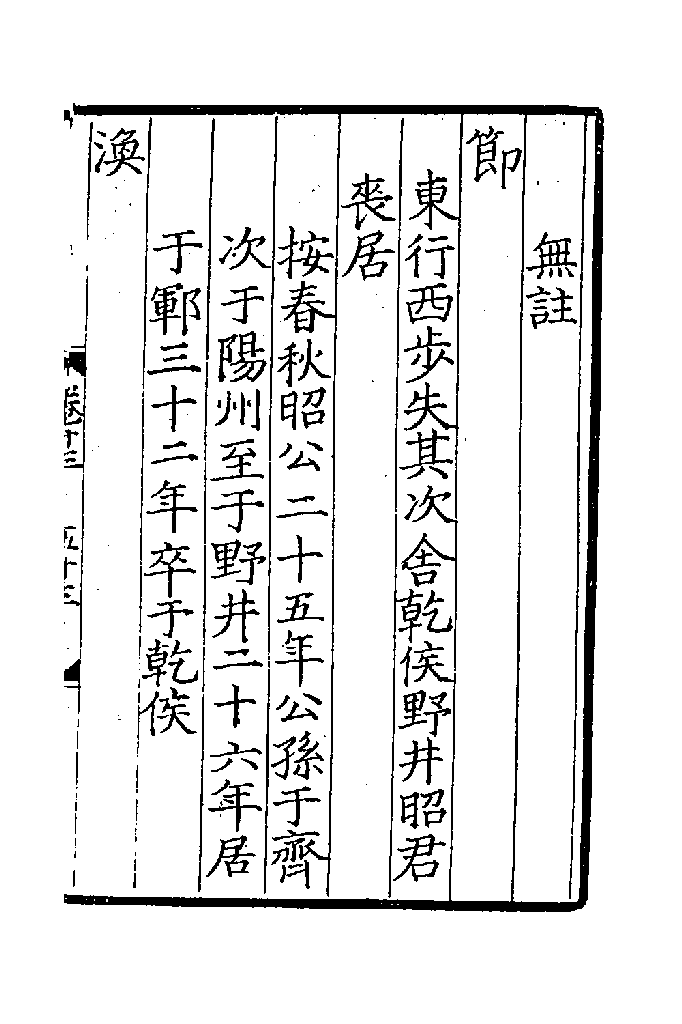 無註
節
東行西步失其次舍乾侯野井昭君
喪居
按春秋昭公二十五年公孫于齊
次于陽州至于野井二十六年居
于鄆三十二年卒于乾侯
渙
卷十三
五十三